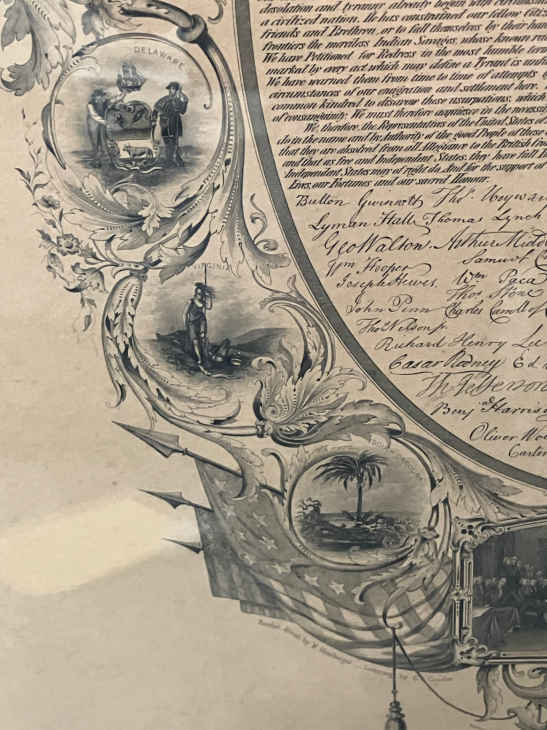 desolation and tyranny, already begun with circumstances
a civilized nation. He has constrained our fellow Citiz
Friends and Brethren, or to fall themselves by their hands
frontiers the merciless Indian Savages, whose known ru
We have Petitioned for Redress in the most humble term
marked by every act which may define a Tyrant is unfit
We have warned them from time to time of attempts
circumstances of our emigration and settlement here.
common kindred to disavow these usurpations, which
of consanguinity. We must therefore acquiesce in the necessi
We, therefore, the Representatives of the United States of
do in the name and by Authority of the good People of these
that they are absolved from all Allegiance to the British Crown
and that as free and Independent States, they have full
Independent States may of right do. And for the support of
Lives, our Fortunes and our sacred Honour.
DELAWARE
Button Gwinnett Tho.s Heyward
Lyman Hall. Thomas Lynch
Geo Walton. Arthur Midd
Samuel
Wm Hooper
Joseph Hewes. Wm Paca
Thos Stone
John Penn Charles Carroll of
Tho Nelson jr
Richard Henry Lee
Caesar Rodney
Th Jefferson
Benj Harrison
Oliver Wo
VIRGINIA